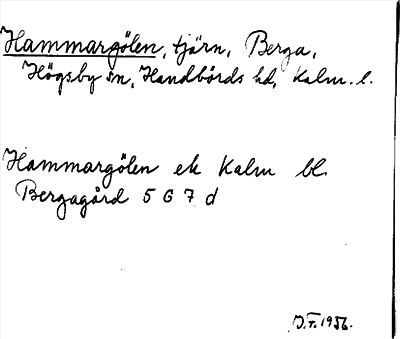 Hammargölen, tjärn, Berga,
Högsby sn, Handbörds hd, Kalm. l.
Hammargölen ek Kalm bl.
Bergagård 5 G 7 d
J.F. 1956.